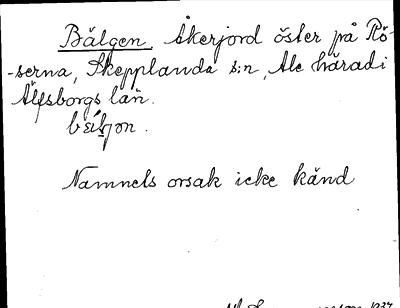 Bälgen. Åkerjord öster på Rö-
-serna, Skepplanda s:n, Ale härad i
Älfsborgs län.
Namnets orsak icke känd
1937